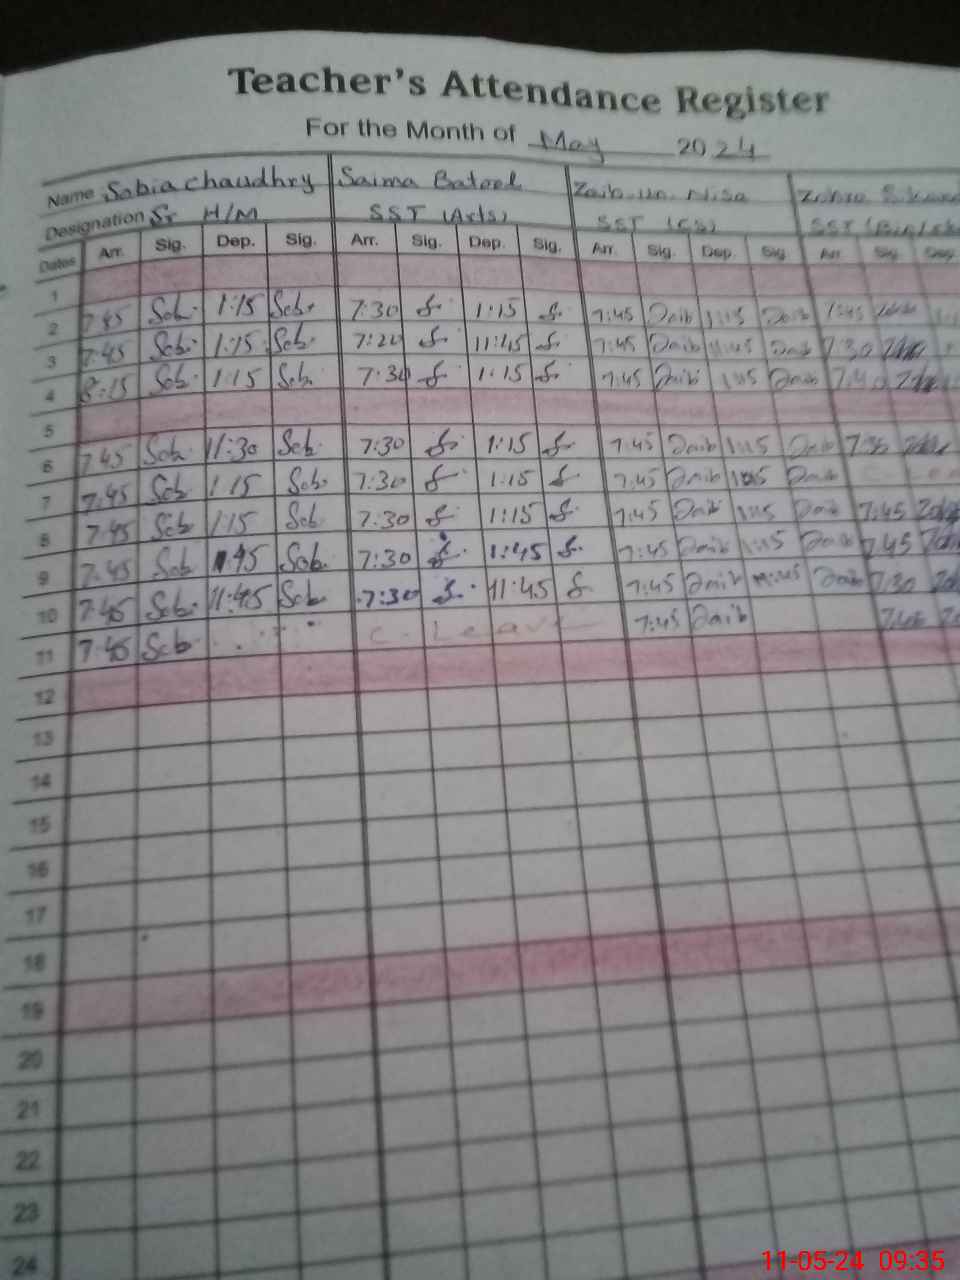 Teacher's Attendance Register
For the Month of May 2024
Name Sobia Chaudhry Saima Batool Zaib un Nisa Zohra
Designation Sr H/M SST (Arts) SST (CS) SST
Dates Arr. Sig. Dep. Sig. Arr. Sig. Dep. Sig. Arr. Sig. Dep. Sig. Arr. Sig. Dep.
1
2 7:45 Sob. 1:15 Sob. 7:30 1:15 7:45 Zaib 1:15 Zaib 7:45
3 7:45 Sob. 1:15 Sob. 7:20 11:45 7:45 Zaib 11:45 Zaib 7:30
4 8:15 Sob. 1:15 Sob. 7:30 1:15 7:45 Zaib 1:15 Zaib 7:40
5
6 7:45 Sob. 11:30 Sob. 7:30 1:15 7:45 Zaib 1:15 Zaib 7:35
7 7:45 Sob 1:15 Sob. 7:30 1:15 7:45 Zaib 1:15 Zaib
8 7:45 Sob 1:15 Sob. 7:30 1:15 7:45 Zaib 1:15 Zaib 7:45
9 7:45 Sob 1:45 Sob. 7:30 1:45 7:45 Zaib 1:15 Zaib 7:45
10 7:45 Sob. 11:45 Sob. 7:30 11:45 7:45 Zaib 11:45 Zaib 7:30
11 7:45 Sob C. Leave 7:45 Zaib 7:45
12
13
14
15
16
17
18
19
20
21
22
23
24
11-05-24 09:35